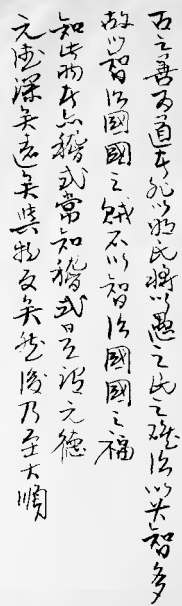 古之善為道者非以明民將以愚之民之難治以其智多
故以智治國國之賊不以智治國國之福
知此兩者亦稽式常知稽式是謂元德
元德深矣遠矣與物反矣然後乃至大順